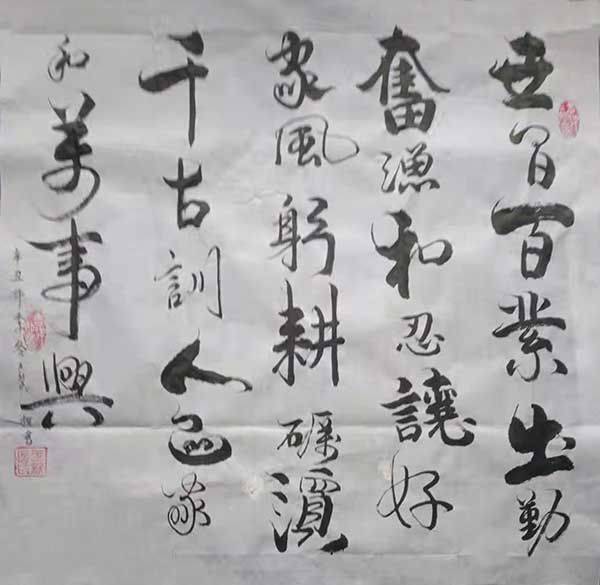 世间百業出勤
奮謙和忍讓好
家風躬耕礪濱
千古訓人邑家
和萬事興
辛丑年季冬